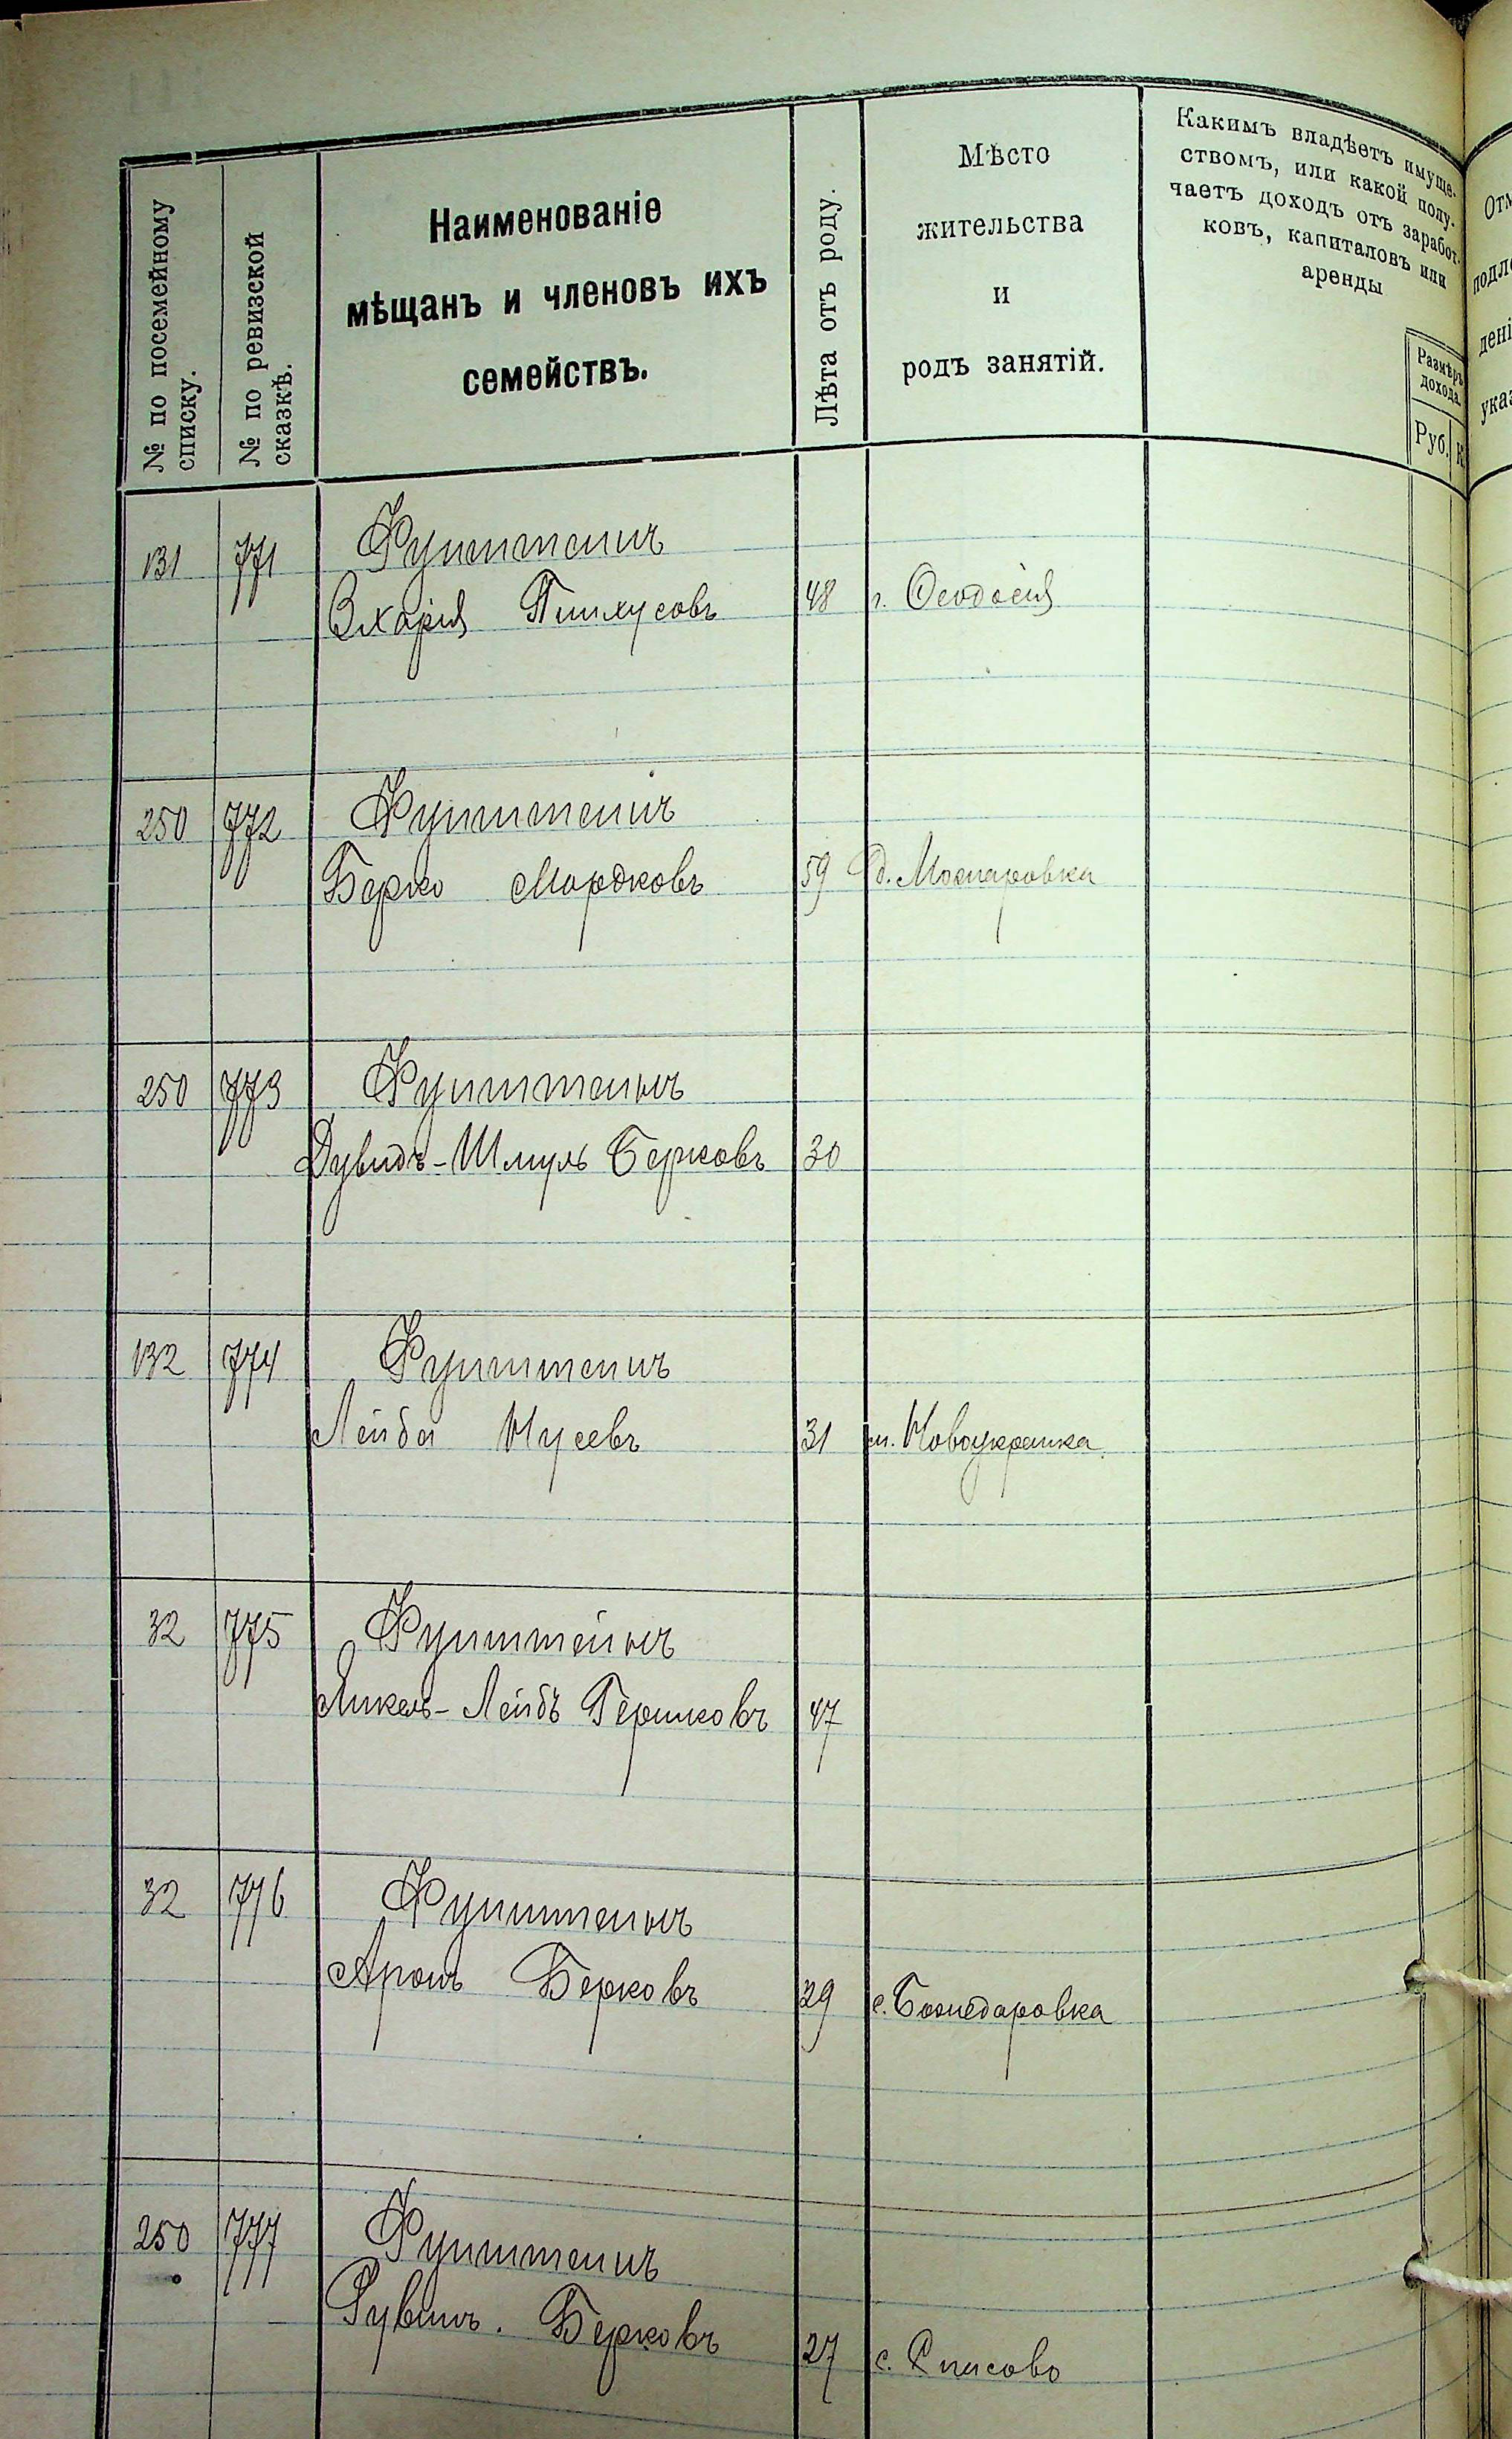 № по посемейному
списку.
№ по ревизской
сказкѣ.
Наименованіе
мѣщанъ и членовъ ихъ
семействъ.
Лѣта отъ роду.
Мѣсто
жительства
и
родъ занятій.
Какимъ владѣетъ имуще-
ствомъ, или какой полу-
чаетъ доходъ отъ заработ-
ковъ, капиталовъ или
аренды
Размѣръ
дохода.
Руб. К
131 771 Фунштейнъ
Пинхусовъ 48 г. Ѳеодосія
250 772 Фунштейнъ
Берко Мордковъ 59 д.
250 773 Фунштейнъ
Дувидъ-Шмуль Берковъ 30
132 774 Фунштейнъ
Лейба Нусевъ 31 м. Новоукраинка
32 775 Фунштейнъ
Янкель-Лейбъ Гершковъ 47
32 776 Фунштейнъ
Аронъ Берковъ 29 с. Божедаровка
250 777 Фунштейнъ
Рувинъ. Берковъ 27 с. Спасово